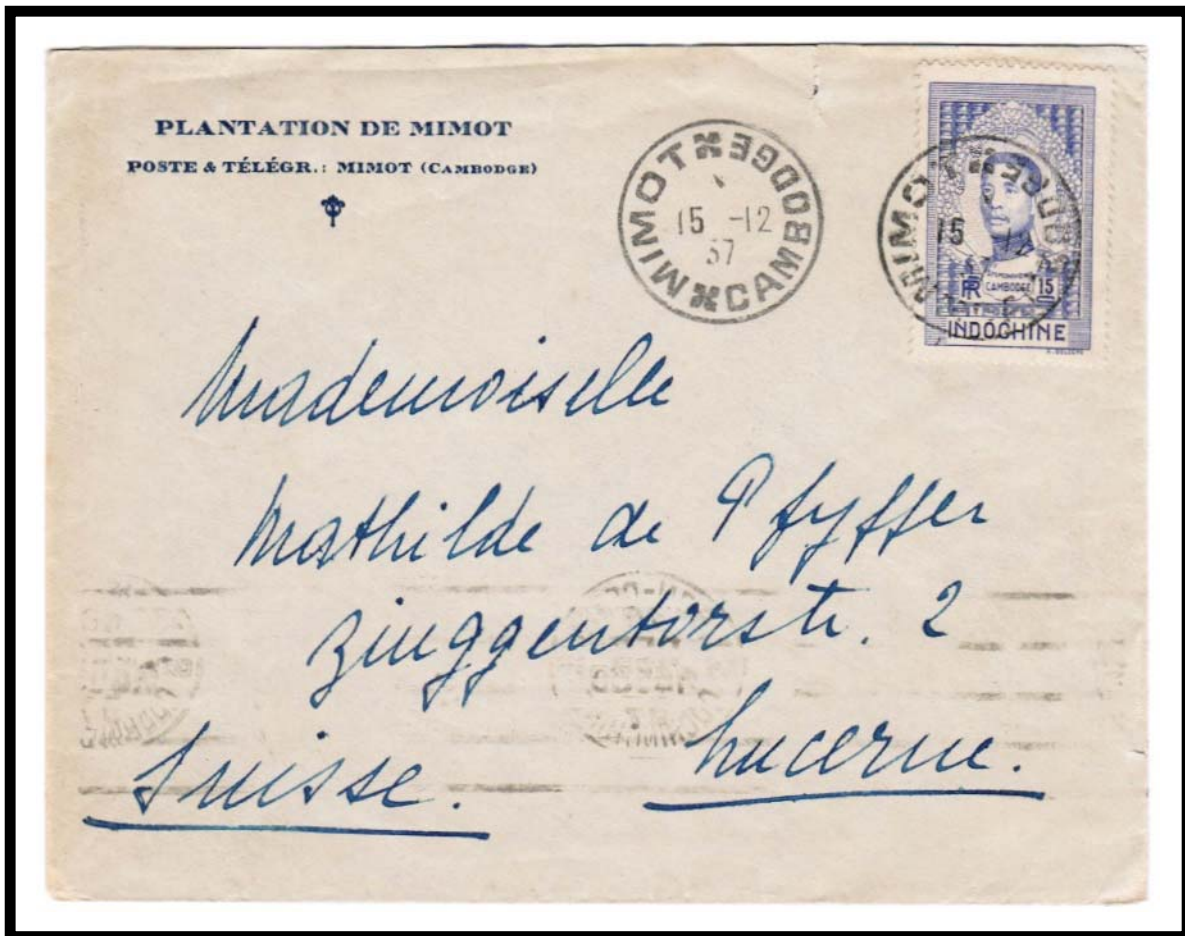 PLANTATION DE MIMOT
POSTE & TÉLÉGR.: MIMOT (CAMBODGE)
MIMOT CAMBODGE
15 -12
37
MIMOT
15 12
CAMBODGE
RF 15
INDOCHINE
Mademoiselle
Mathilde de Pfyffer
Zinggentorstr. 2
Lucerne.
Suisse.